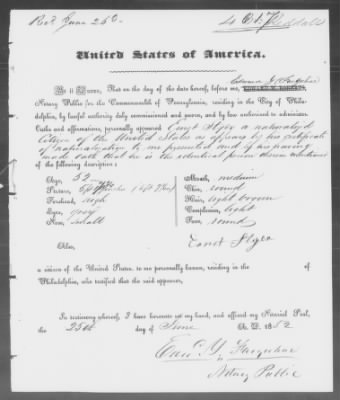 Rec'd June 26th
United States of America.
Be it Known, That on the day of the date hereof, before me,
Notary Public for the Commonwealth of Pennsylvania, residing in the City of Phila-
delphia, by lawful authority duly commissioned and sworn, and by law authorized to administer
Oaths and affirmations, personally appeared Ernst a naturalized
Citizen of the United States as appears by his certificate
of naturalization to me presented and he having
made oath that he is the identical person therein mentioned
of the following description;
Age, 52
Stature, 5 ft 7 inches
Forehead, high
Eyes, grey
Nose, small
Mouth, medium
Chin, round
Hair, light brown
Complexion, light
Face, round
Also,
a citizen of the United States to me personally known, residing in the of
Philadelphia, who testified that the said appearer,
In testimony whereof, I have hereunto set my hand, and affixed my Notarial Seal,
the 25th day of June A. D. 1852
Farquhar
Notary Public